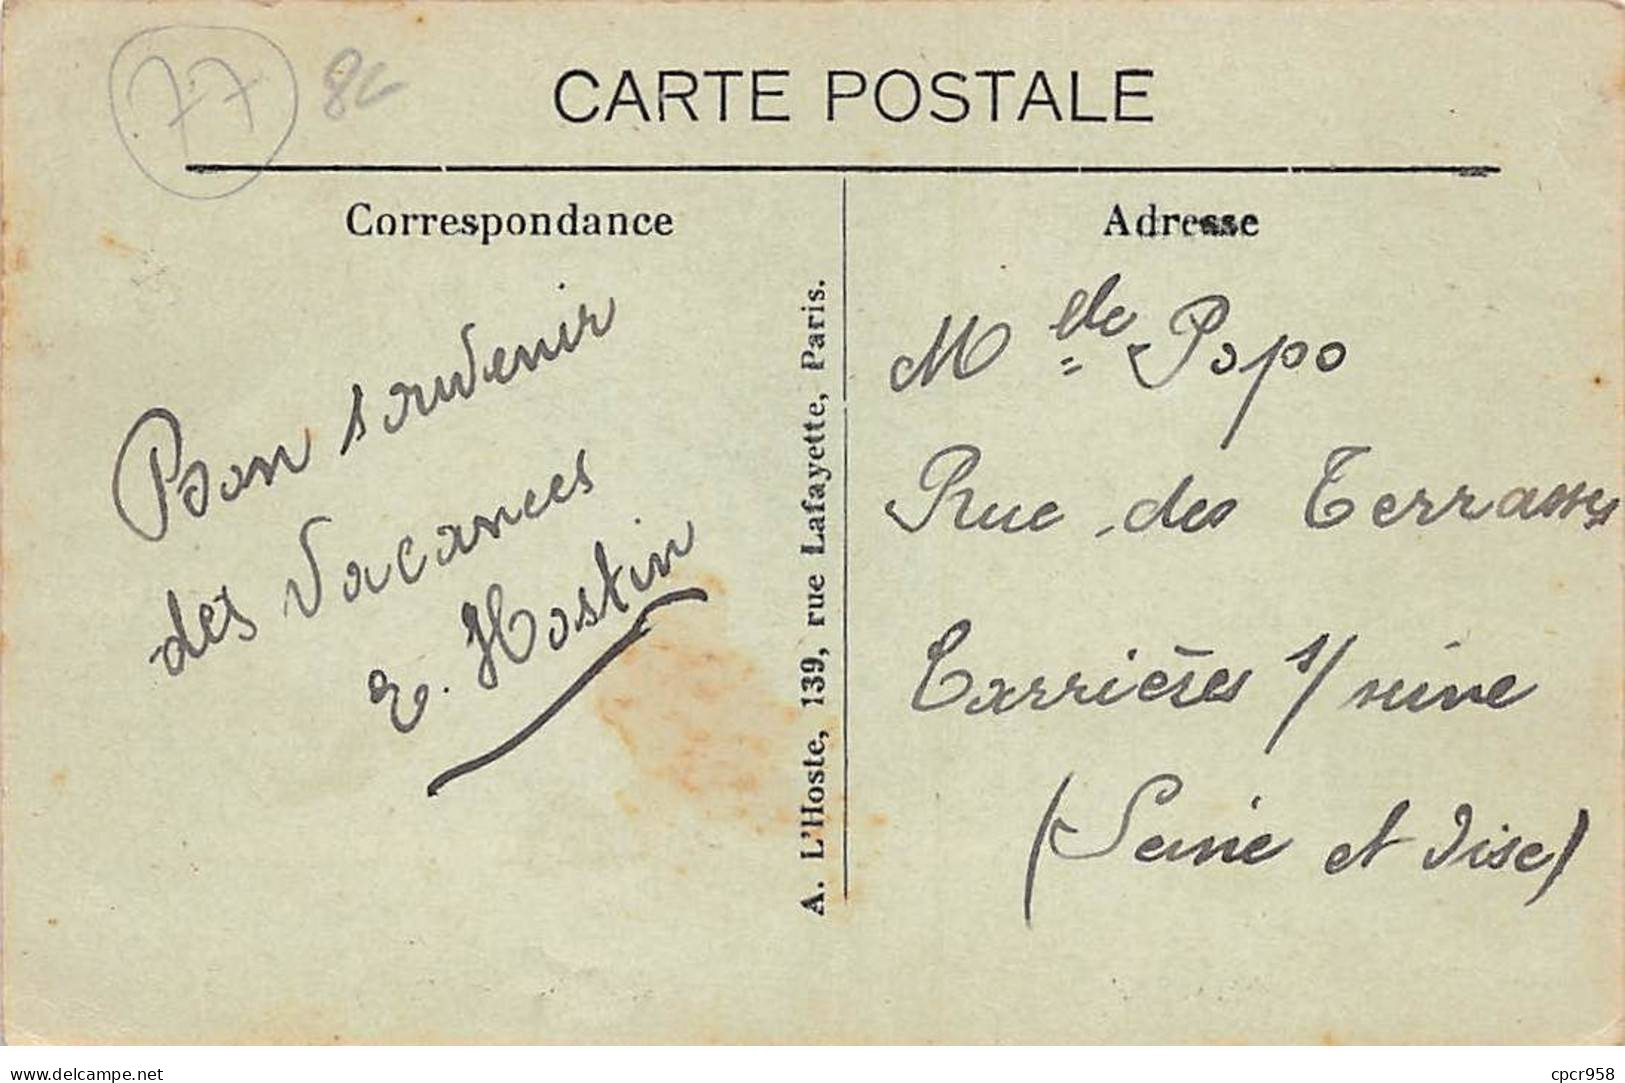 77
CARTE POSTALE
Correspondance
Bon souvenir
des Vacances
E. Hostin
A. L'Hoste, 139, rue Lafayette, Paris.
Adresse
Mlle Popo
Rue des Terrasses
Carrières s/ seine
(Seine et Oise)
delcampe.net
cpcr958